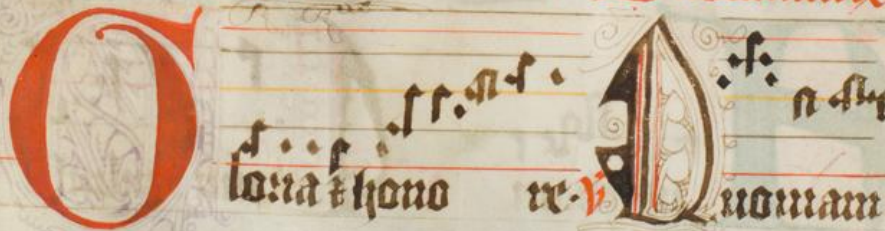 Gloria & hono re. V Quoniam